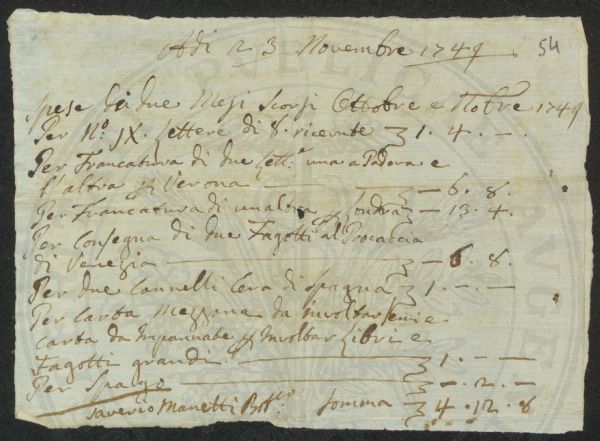 54
Adi 23 Novembre 1749
Spese di due Mesi Scorsi Ottobre e Nobre 1749
Per No. IX. Lettere di 8. ricevute 1. 4. —.
Per Francatura di due Lett.e una a Padova e
l'altra Verona — 6. 8.
Per Francatura di un altra Londra — 13. 4.
Per Consegna di due Fagotti al Procaccia
di Venezia — 6. 8.
Per due Cannelli Cera di Spagna 1. — —
Per Carta Mezzana da involtar
carta da Impannate Involtar Libri e
Fagotti grandi. 1. — —
Per Spago — . 2. —
Saverio Manetti Somma 4. 12. 8